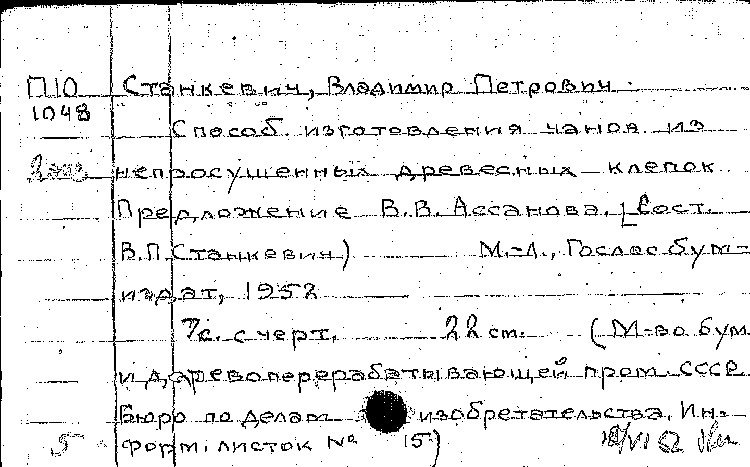 П10 Станкевич, Владимир Петрович.
1048
Способ изготовления чанов из
2экз непросушенных древесных клепок
Предложение В.В. Ассанова. [Сост.
В.П. Станкевич) М.-Л., Гослесбум-
издат, 1952
7с. с черт. 22 см. (М-во бум
и деревоперерабатывающей пром. СССР
Бюро по делам изобретательства. Ин-
5 форм. листок № 15)